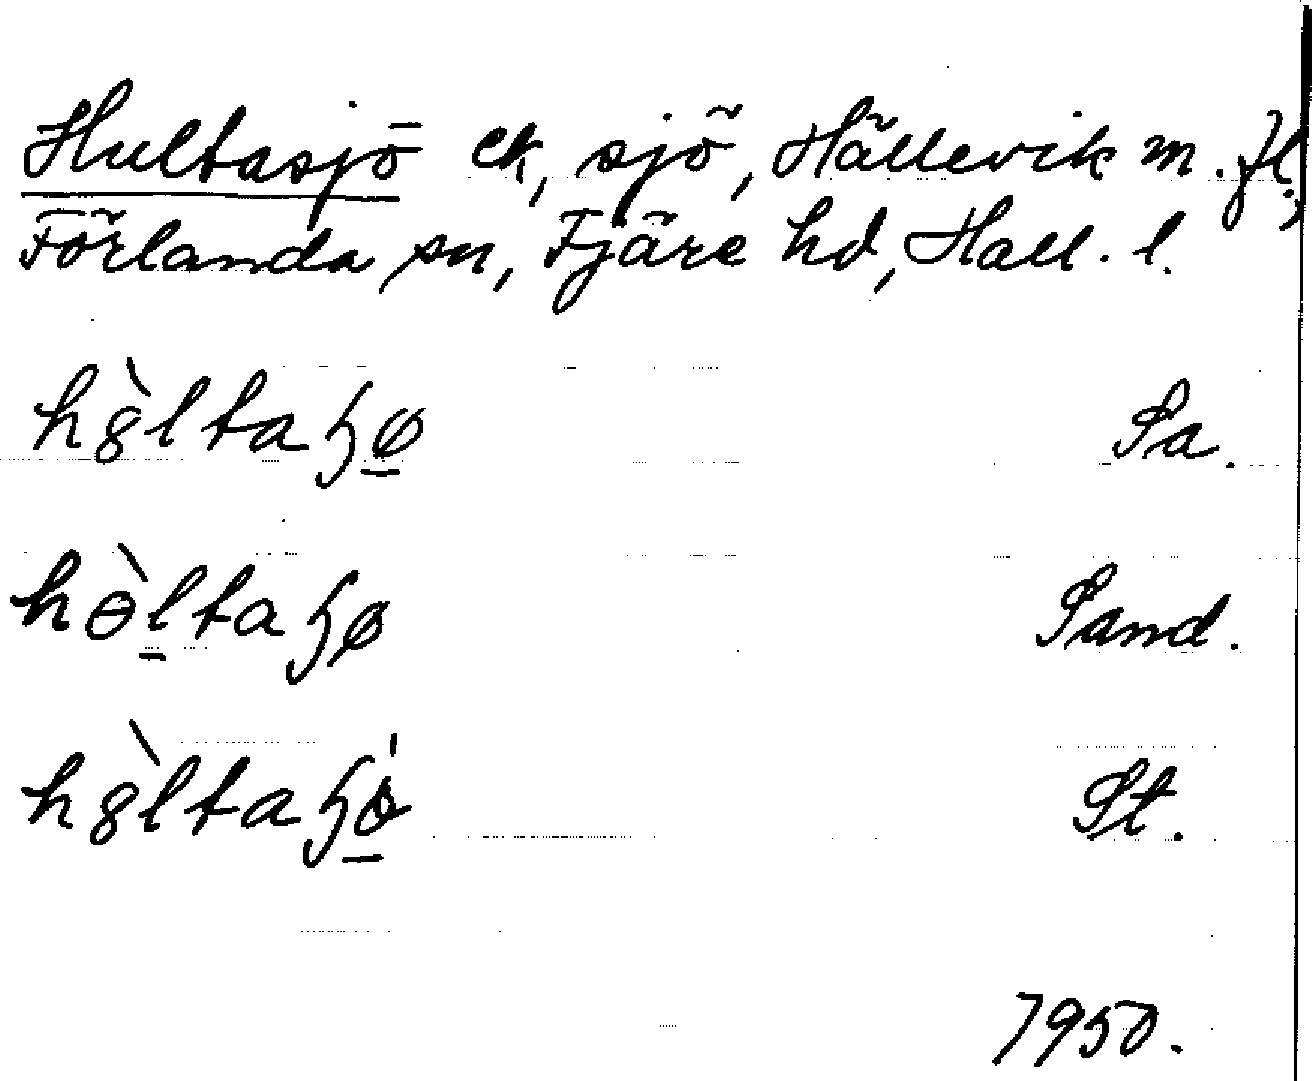 Hultasjö ek, sjö, Hällevik m. fl.,
Förlanda sn, Fjäre hd, Hall. l.
h8̀ltaɧø̱ Sa.
hɵ̀ḻtaɧø Sand.
h8̀ltaɧǿ̱ St.
1950.